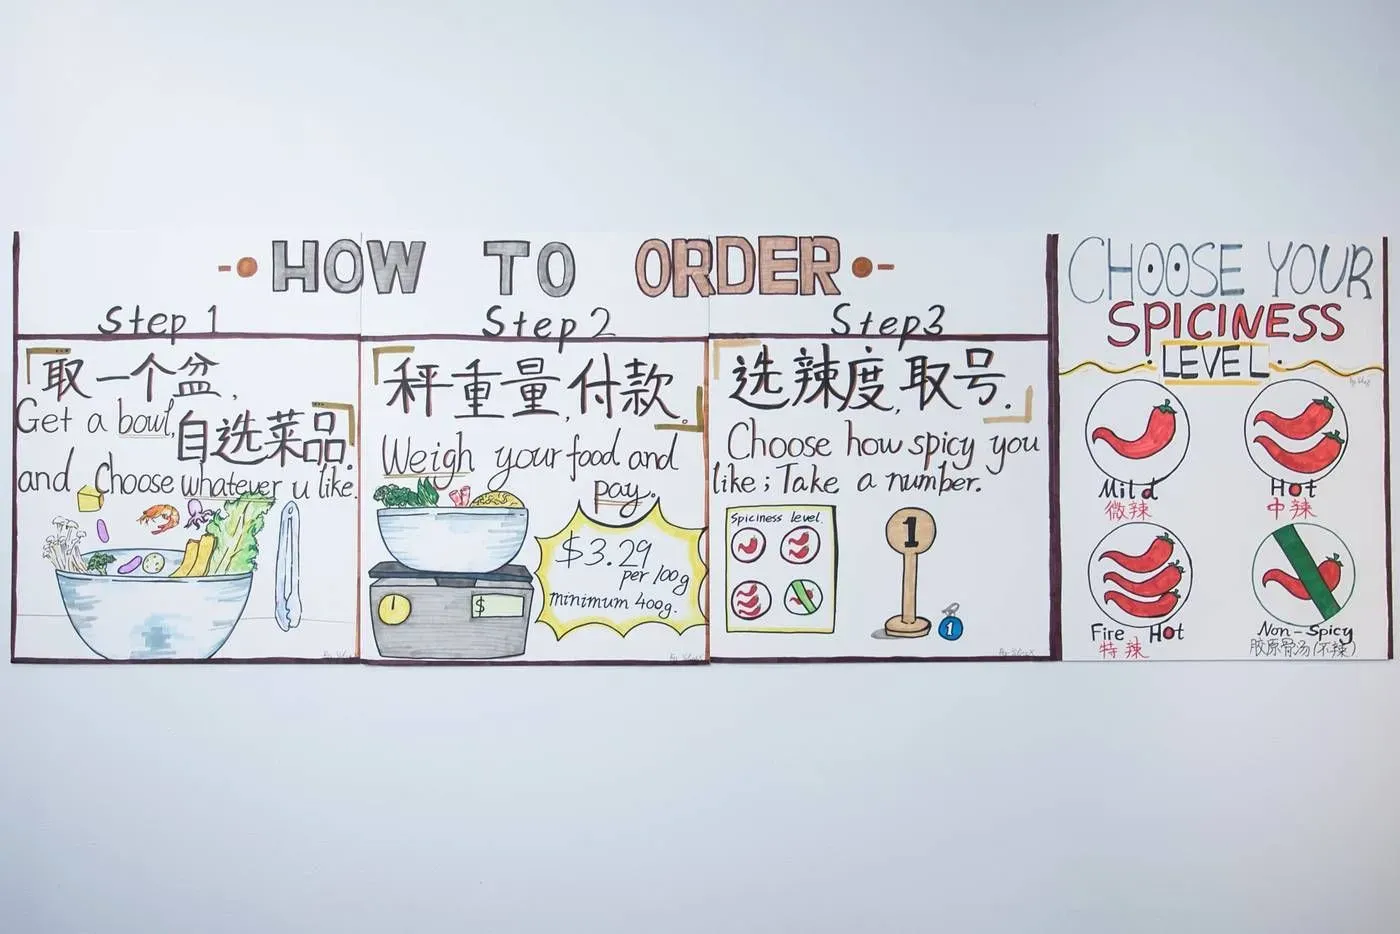 HOW TO ORDER
Step 1
取一个盆,
Get a bowl,
自选菜品.
and Choose whatever u like.
Step 2
秤重量,付款.
Weigh your food and
pay.
$
$3.29
per 100g
minimum 400g.
Step3
选辣度,取号.
Choose how spicy you
like; Take a number.
Spiciness level.
1
1
CHOOSE YOUR
SPICINESS
LEVEL.
Mild
微辣
Hot
中辣
Fire Hot
特辣
Non-Spicy
胶原骨汤(不辣)